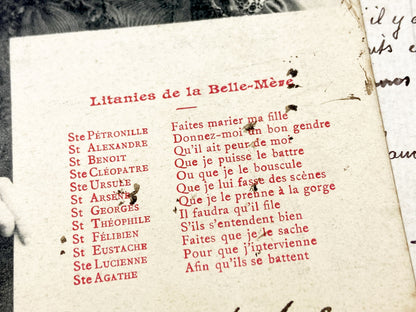 il y
Litanies de la Belle-Mère
Ste PÉTRONILLE Faites marier ma fille
St ALEXANDRE Donnez-moi un bon gendre
St BENOIT Qu'il ait peur de moi
Ste CLÉOPATRE Que je puisse le battre
Ste URSULE Ou que je le bouscule
St ARSÈNE Que je lui fasse des scènes
St GEORGES Que je le prenne à la gorge
St THÉOPHILE Il faudra qu'il file
St FÉLIBIEN S'ils s'entendent bien
St EUSTACHE Faites que je le sache
Ste LUCIENNE Pour que j'intervienne
Ste AGATHE Afin qu'ils se battent